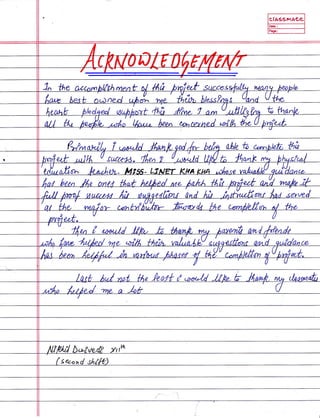 classmate
Date :
Page :
ACKNOWLEDGEMENT
In the accomplishment of this project successfully many people
have best owned upon me their blessings and the
heart pledged support this time I am utilizing to thank
all the people who have been concerned with the project.
Primarily I would thank god for being able to complete this
project with success. Then I would like to thank my physical
education teacher. MISS. LINET KHAKHA whose valuable guidance
has been the ones that helped me patch this project and make it
full proof success his suggestions and his instructions has served
as the major contributor towards the completion of the
project.
Then i would like to thank my parents and friends
who have helped me with their valuable suggestions and guidance
has been helpful in various phases of the completion of project.
Last but not the least i would like to thank my classmates
who helped me a lot
Nikhil Dwivedi XIIth
(second shift)